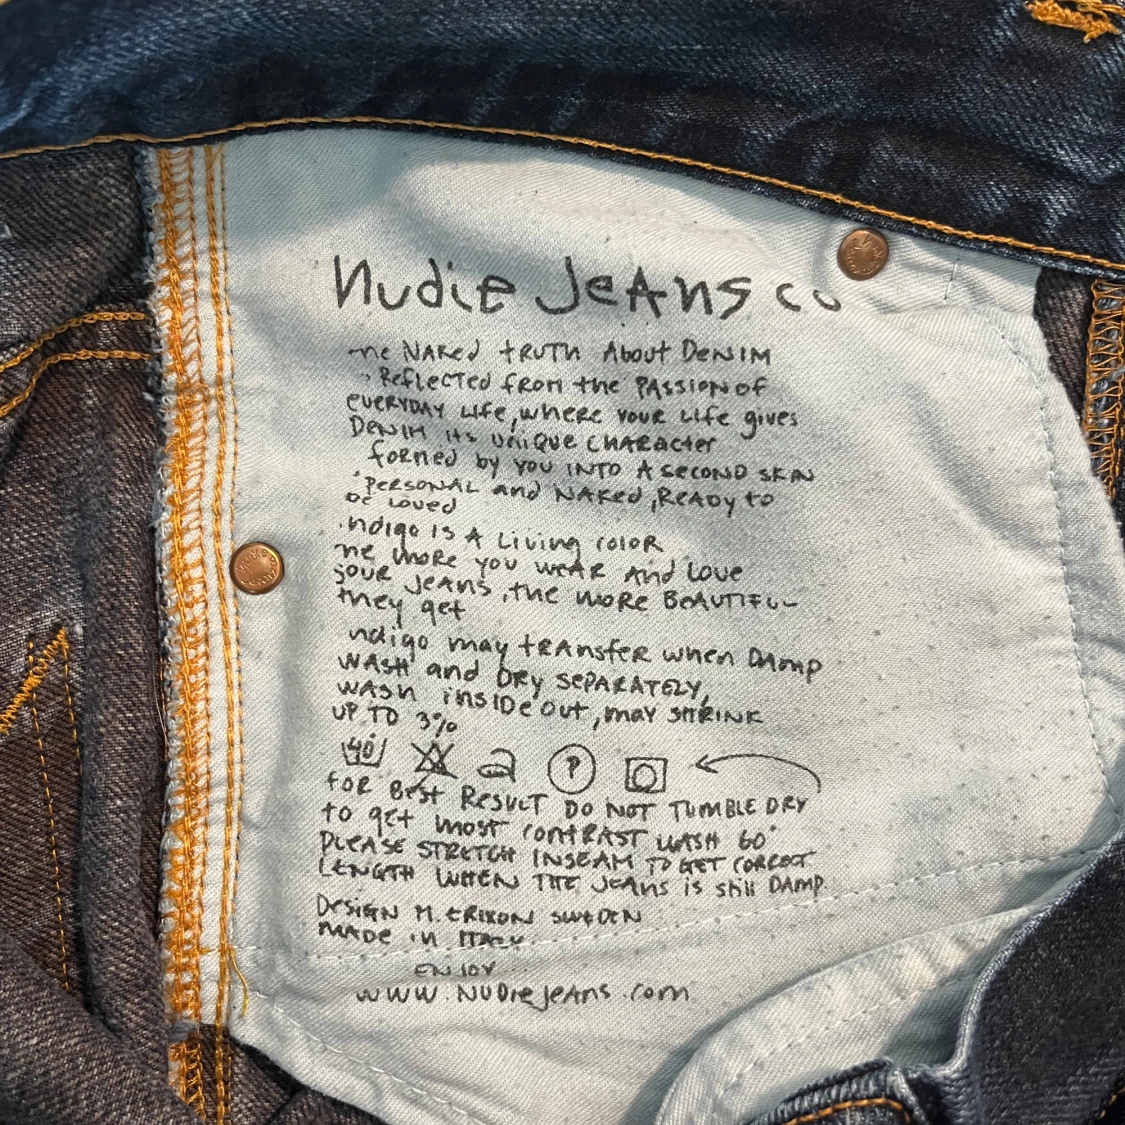 Nudie Jeans co
The Naked truth About Denim
Reflected from the PASSION of
EVERYDAY Life, where your Life gives
Denim its unique CHARACTER
formed by you INTO A SECOND SKIN
PERSONAL and NAKED, READY to
be Loved
Indigo is A Living color
The more you wear And Love
your jeans, the more BEAUTIFUL
they get
Indigo may transfer when Damp
WASH and Dry SEPARATELY,
WASH inside out, may SHRINK
UP TO 3%
40 P
FOR Best RESULT DO NOT TUMBLE DRY
TO get most CONTRAST WASH 60°
PLEASE STRETCH INSEAM TO GET CORRECT
LENGTH WHEN THE Jeans is still DAMP.
Design M. ERIXON SWEDEN
MADE in ITALY
ENJOY
WWW.Nudiejeans.com